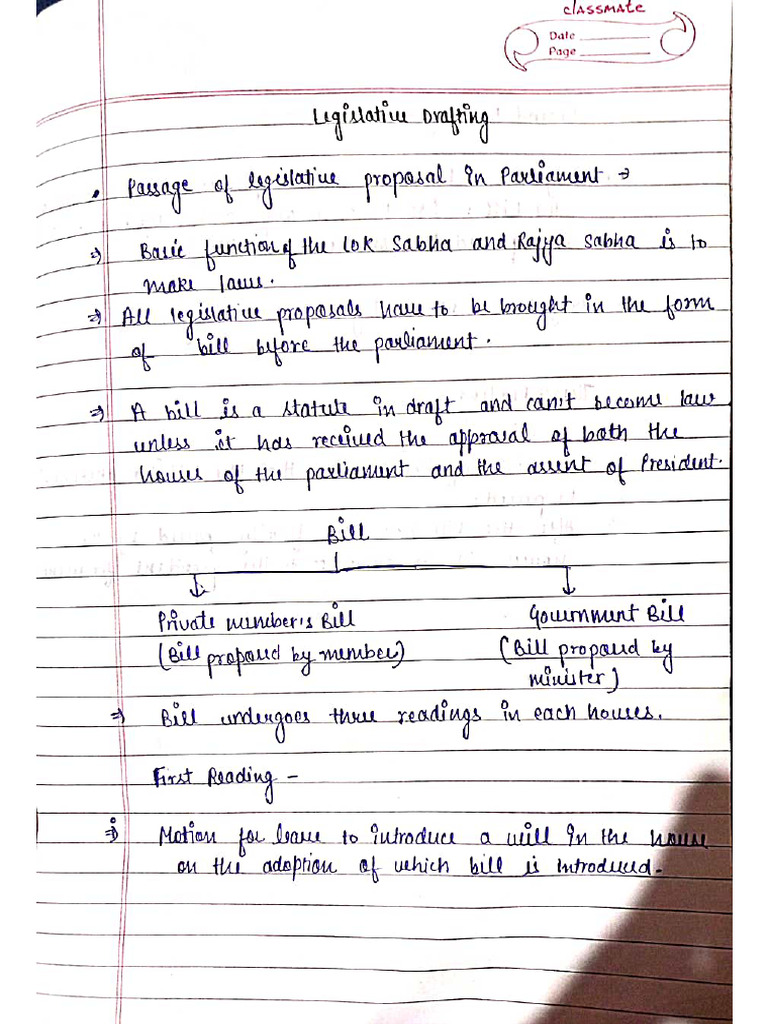 classmate
Date
Page
Legislative Drafting
• Passage of legislative proposal in Parliament →
⇒ Basic function of the Lok Sabha and Rajya Sabha is to
make laws.
⇒ All legislative proposals have to be brought in the form
of bill before the parliament.
⇒ A bill is a statute in draft and can't become law
unless it has received the approval of both the
houses of the parliament and the assent of President.
Bill
Private member's Bill Government Bill
(Bill proposed by member) (Bill proposed by
minister)
⇒ Bill undergoes three readings in each houses.
First Reading -
i) Motion for leave to introduce a will in the house
on the adoption of which bill is introduced.